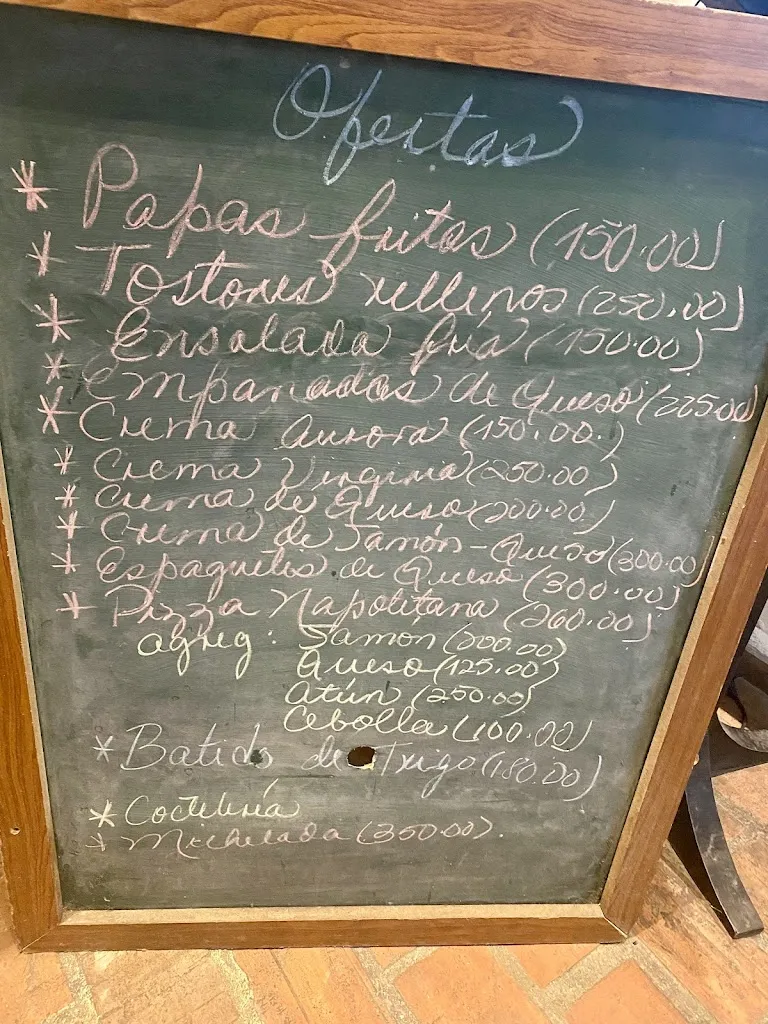 Ofertas
* Papas fritas (150.00)
* Tostones rellenos (250.00)
* Ensalada fría (150.00)
* Empanadas de Queso (225.00)
* Crema Aurora (150.00.)
* Crema Virginia (250.00)
* Crema de Queso (200.00)
* Crema de Jamón-Queso (300.00)
* Espaguetis de Queso (300.00)
* Pizza Napolitana (260.00)
agreg: Jamón (200.00)
Queso (125.00)
Atún (250.00)
Cebolla (100.00)
* Batido de Trigo (180.00)
* Coctelería
* Michelada (350.00).